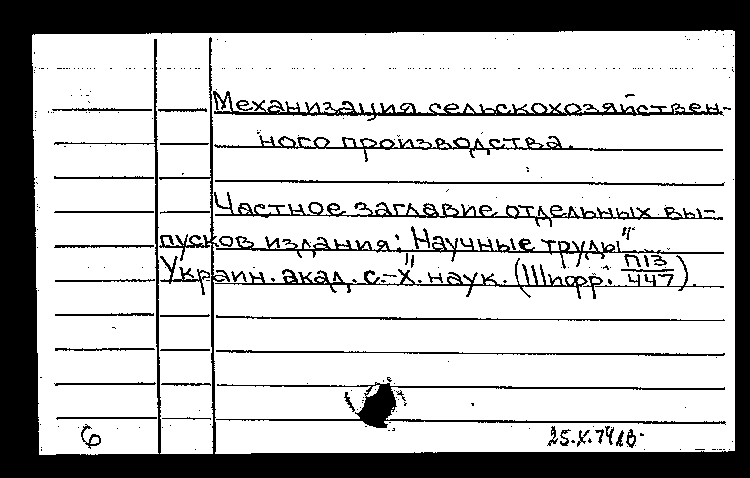 Механизация сельскохозяйствен-
ного производства.
Частное заглавие отдельных вы-
пусков издания: Научные труды"
Украин. акад. с.-х". наук. (Шифр: П13/447).
6
25.X.74